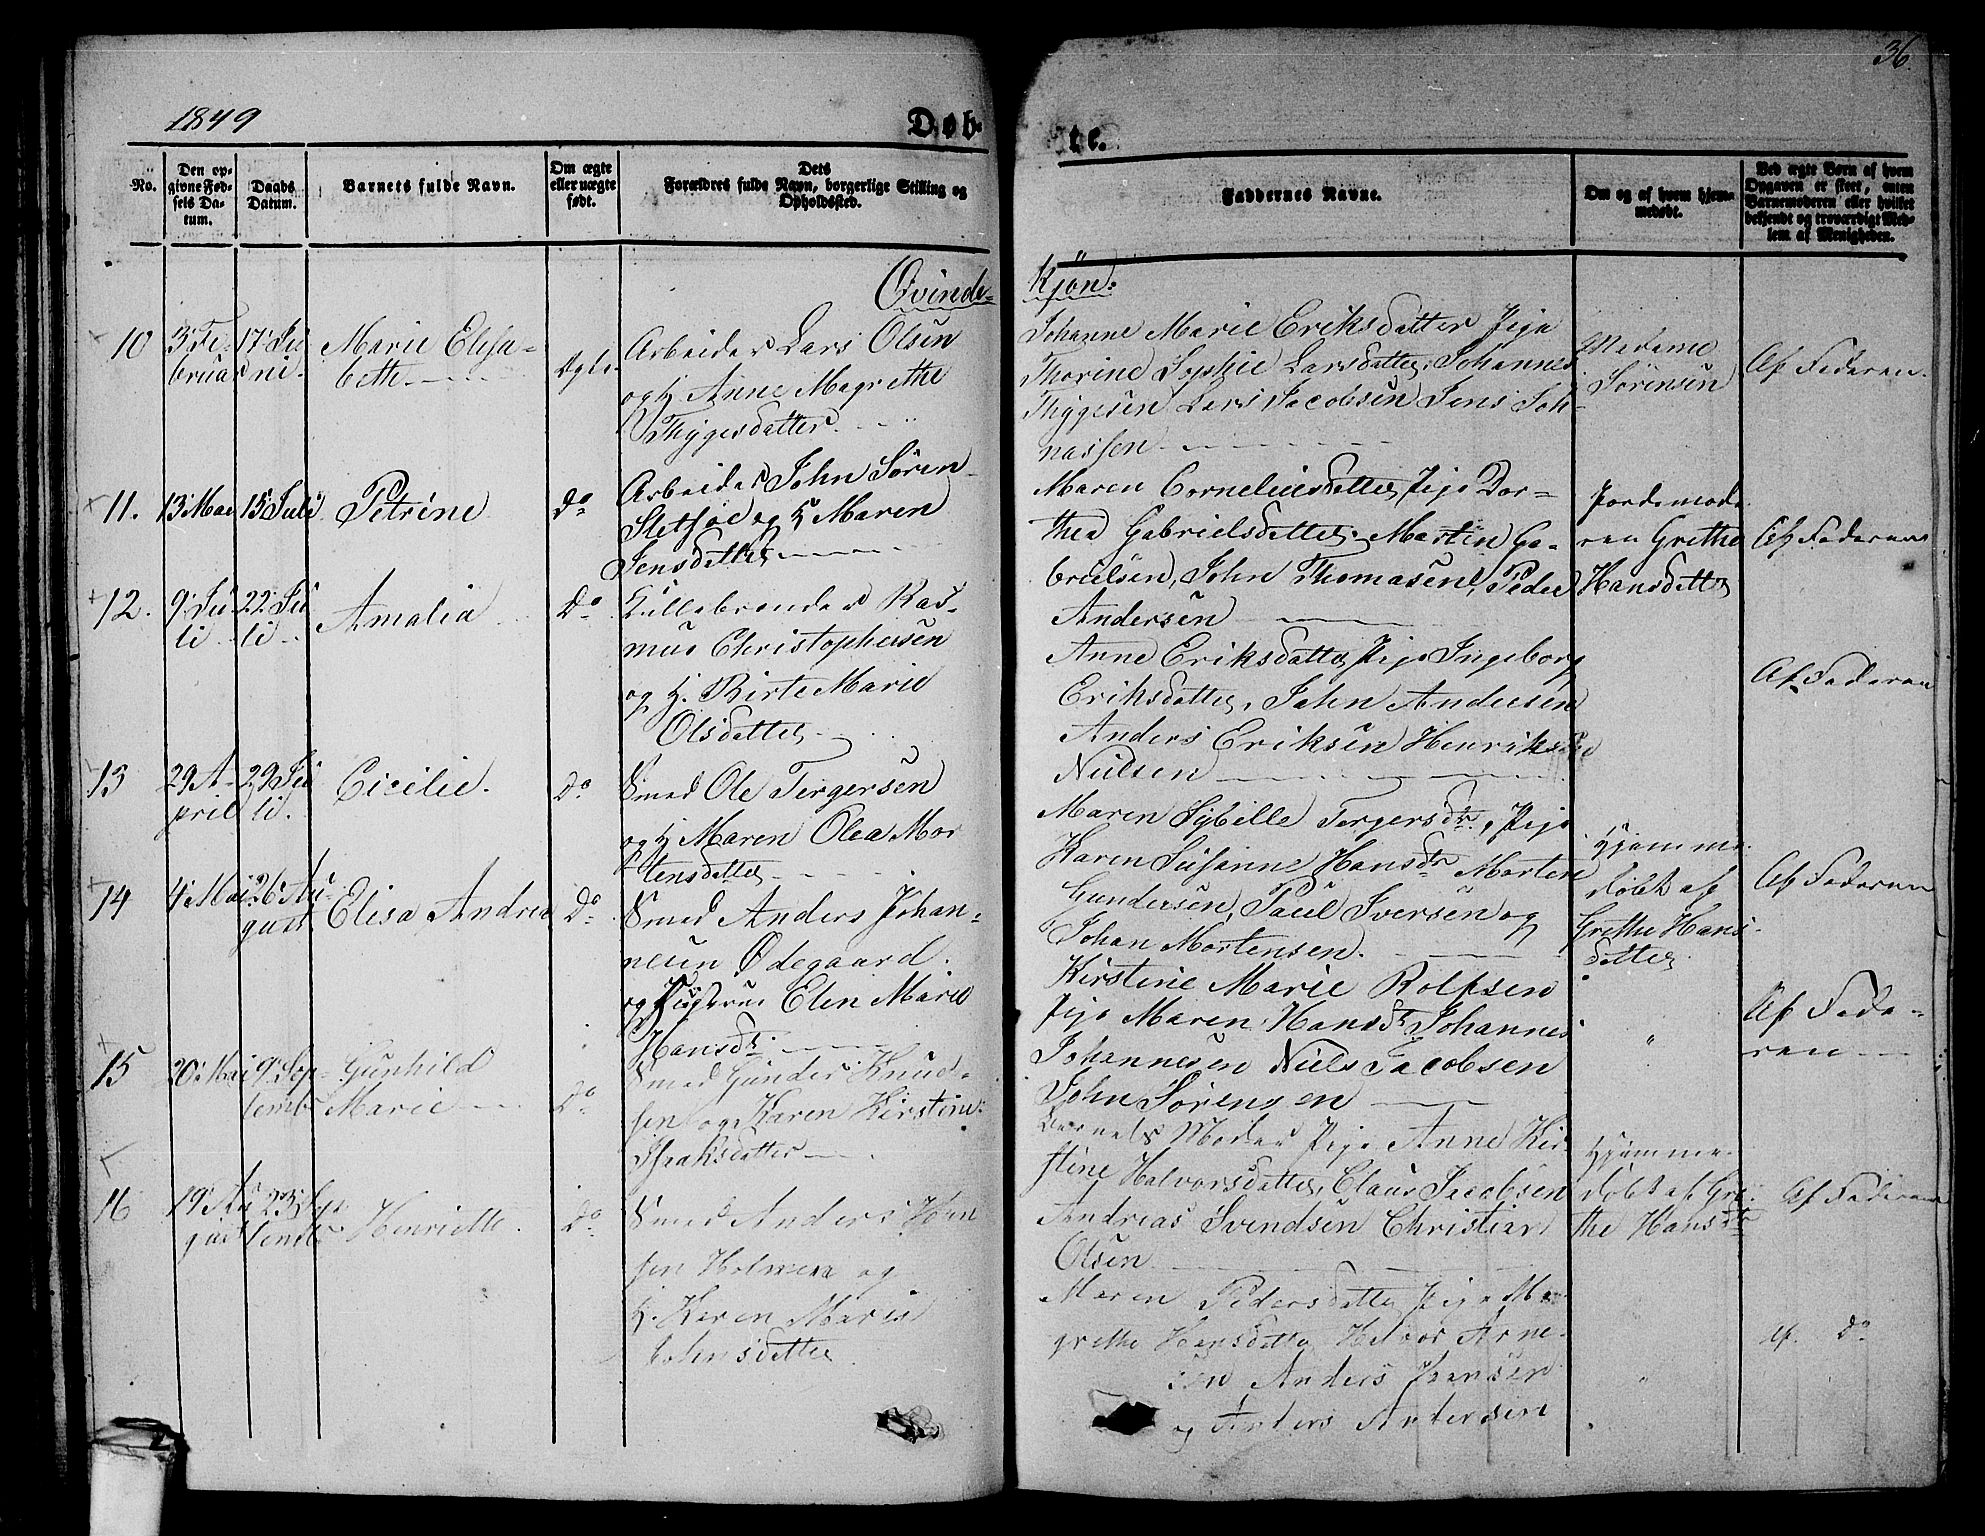 36.
1849
Døb-
te.
No.
Den op-
givne Fød-
sels Da-
tum.
Daabs
Datum.
Barnets fulde Navn.
Om ægte
eller uægte
født.
Dets
Forældres fulde Navn, borgerlige Stilling og
Opholdssted.
Faddernes Navne.
Om og af hvem hjem-
medøbt.
Ved ægte Børn af hvem
Opgaven er skeet, enten
Barnemoderen eller hvilket
bekjendt og troværdigt Med-
lem af Menigheden.
Qvinde-
Kjøn.
10
3 Fe-
bruar
17 Ju
ni.
Marie Elisa-
beth
Ægte
Arbeider Lars Olsen
og H Anne Magrethe
Thygesdatter
Johanne Marie Eriksdatter Pige
Thorine Sophie Larsdatter, Johannes
Thygesen Lars Jacobsen Jens Joh-
nassen
Madame
Sørensen
Af Faderen.
11.
13 Mai
15 Juli
Petrine
Do
Arbeider John Søren
Sletsjøe og H Maren
Jensdatter
Maren Corneliusdatter, Pige Dor-
thea Gabrielsdatter, Martin Ga-
brielsen, John Thomasen, Peder
Andersen
Jordemode
ren Grethe
Hansdatter
Af Faderen
12.
9 Ju
li
22 Ju
li
Amalia
Do
Gullebrender Ras-
mus Christophersen
og H. Birte Marie
Olsdatter
Anne Eriksdatter Pige Ingeborg
Eriksdatter, John Andersen
Anders Eriksen Henrik
Nielsen
Af Faderen
13
29 A-
pril
29 Ju
li.
Cicilie.
Do
Smed Ole Tergersen
og H Maren Olea Mor
tensdatter
Maren Sybille Tergersdtr, Pige
Karen Susanne Hansdtr Morten
Gundersen, Paul Iversen og
Johan Mortensen.
Hjemme-
døbt af
Grethe Hans-
datter
Af Faderen
14
4 Mai
26 Au-
gust
Elisa Andrea
Do
Smed Anders Johan-
nesen Ødegaard.
og Elen Marie
Hansdtr
Kirstine Marie Rolfsen
Pige Maren Hansdtr Johannes
Johannesen Niels Jacobsen
John Sørensen
"
Af Fade-
ren
15
20 Mai
9 Sep-
tembr
Gunhild
Marie
Do
Smed Gunder Knud-
sen og Karen Kirstine
Isaksdatter
Barnets Moder Pige Anne Kir-
stine Halvorsdatter, Claus Jacobsen
Andreas Svendsen Christian
Olsen
Hjemme-
døbt af Gre-
the Hansdtr
Af Faderen
16
19 Au
gust
23 Sep
tembr
Henriette.
Do
Smed Anders John
sen Holmen og
H. Karen Marie
Johnsdatter
Maren Pedersdatter Pige Ma-
grethe Hansdatter Halvor Arne-
sen Anders Hansen
og Anders Andersen
"
af Do